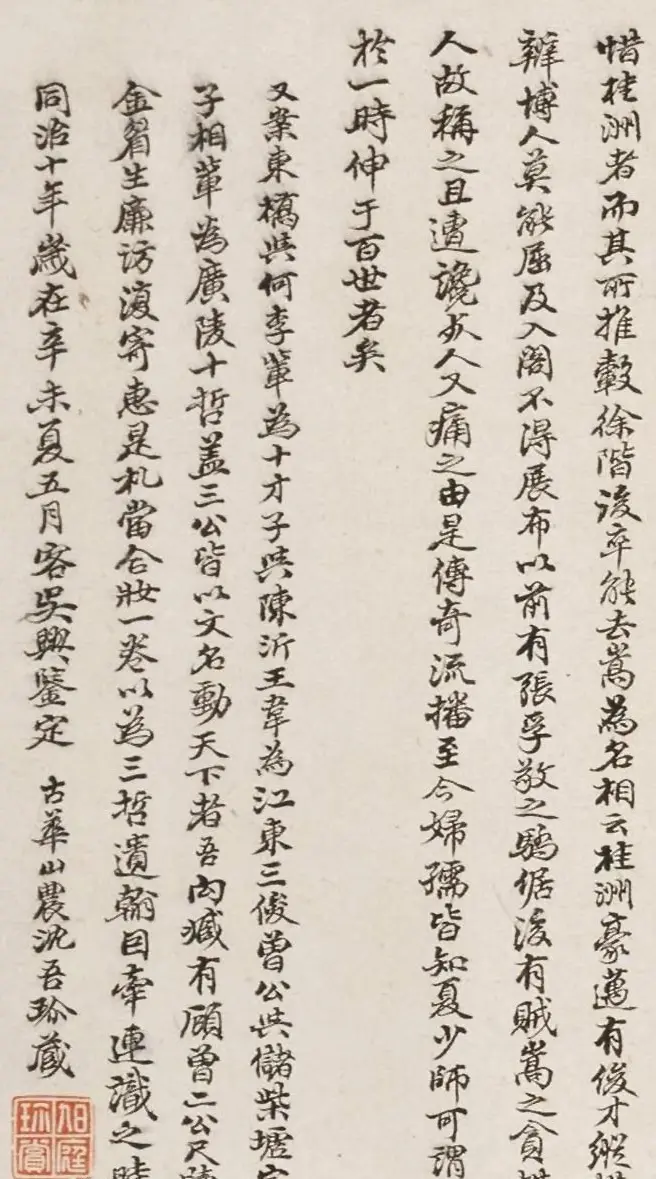 惜桂洲者而其所推轂徐階後卒能去嵩為名相云桂洲豪邁有俊才縱
辨博人莫能屈及入閣不得展布以前有張孚敬之驕倨後有賊嵩之貪
人故稱之且遭讒於人又痛之由是傳奇流播至今婦孺皆知夏少師可謂
於一時伸于百世者矣
又案東橋與何李輩為十才子與陳沂王韋為江東三俊曾公與儲柴墟
子相輩為廣陵十哲蓋三公皆以文名動天下者吾內臧有顧曾二公尺牘
金眉生廉訪復寄惠是札當合妝一卷以為三哲遺翰因牽連識之時
同治十年歲在辛未夏五月客吳興鑒定 古華山農沈吾珍藏
旭庭珍賞